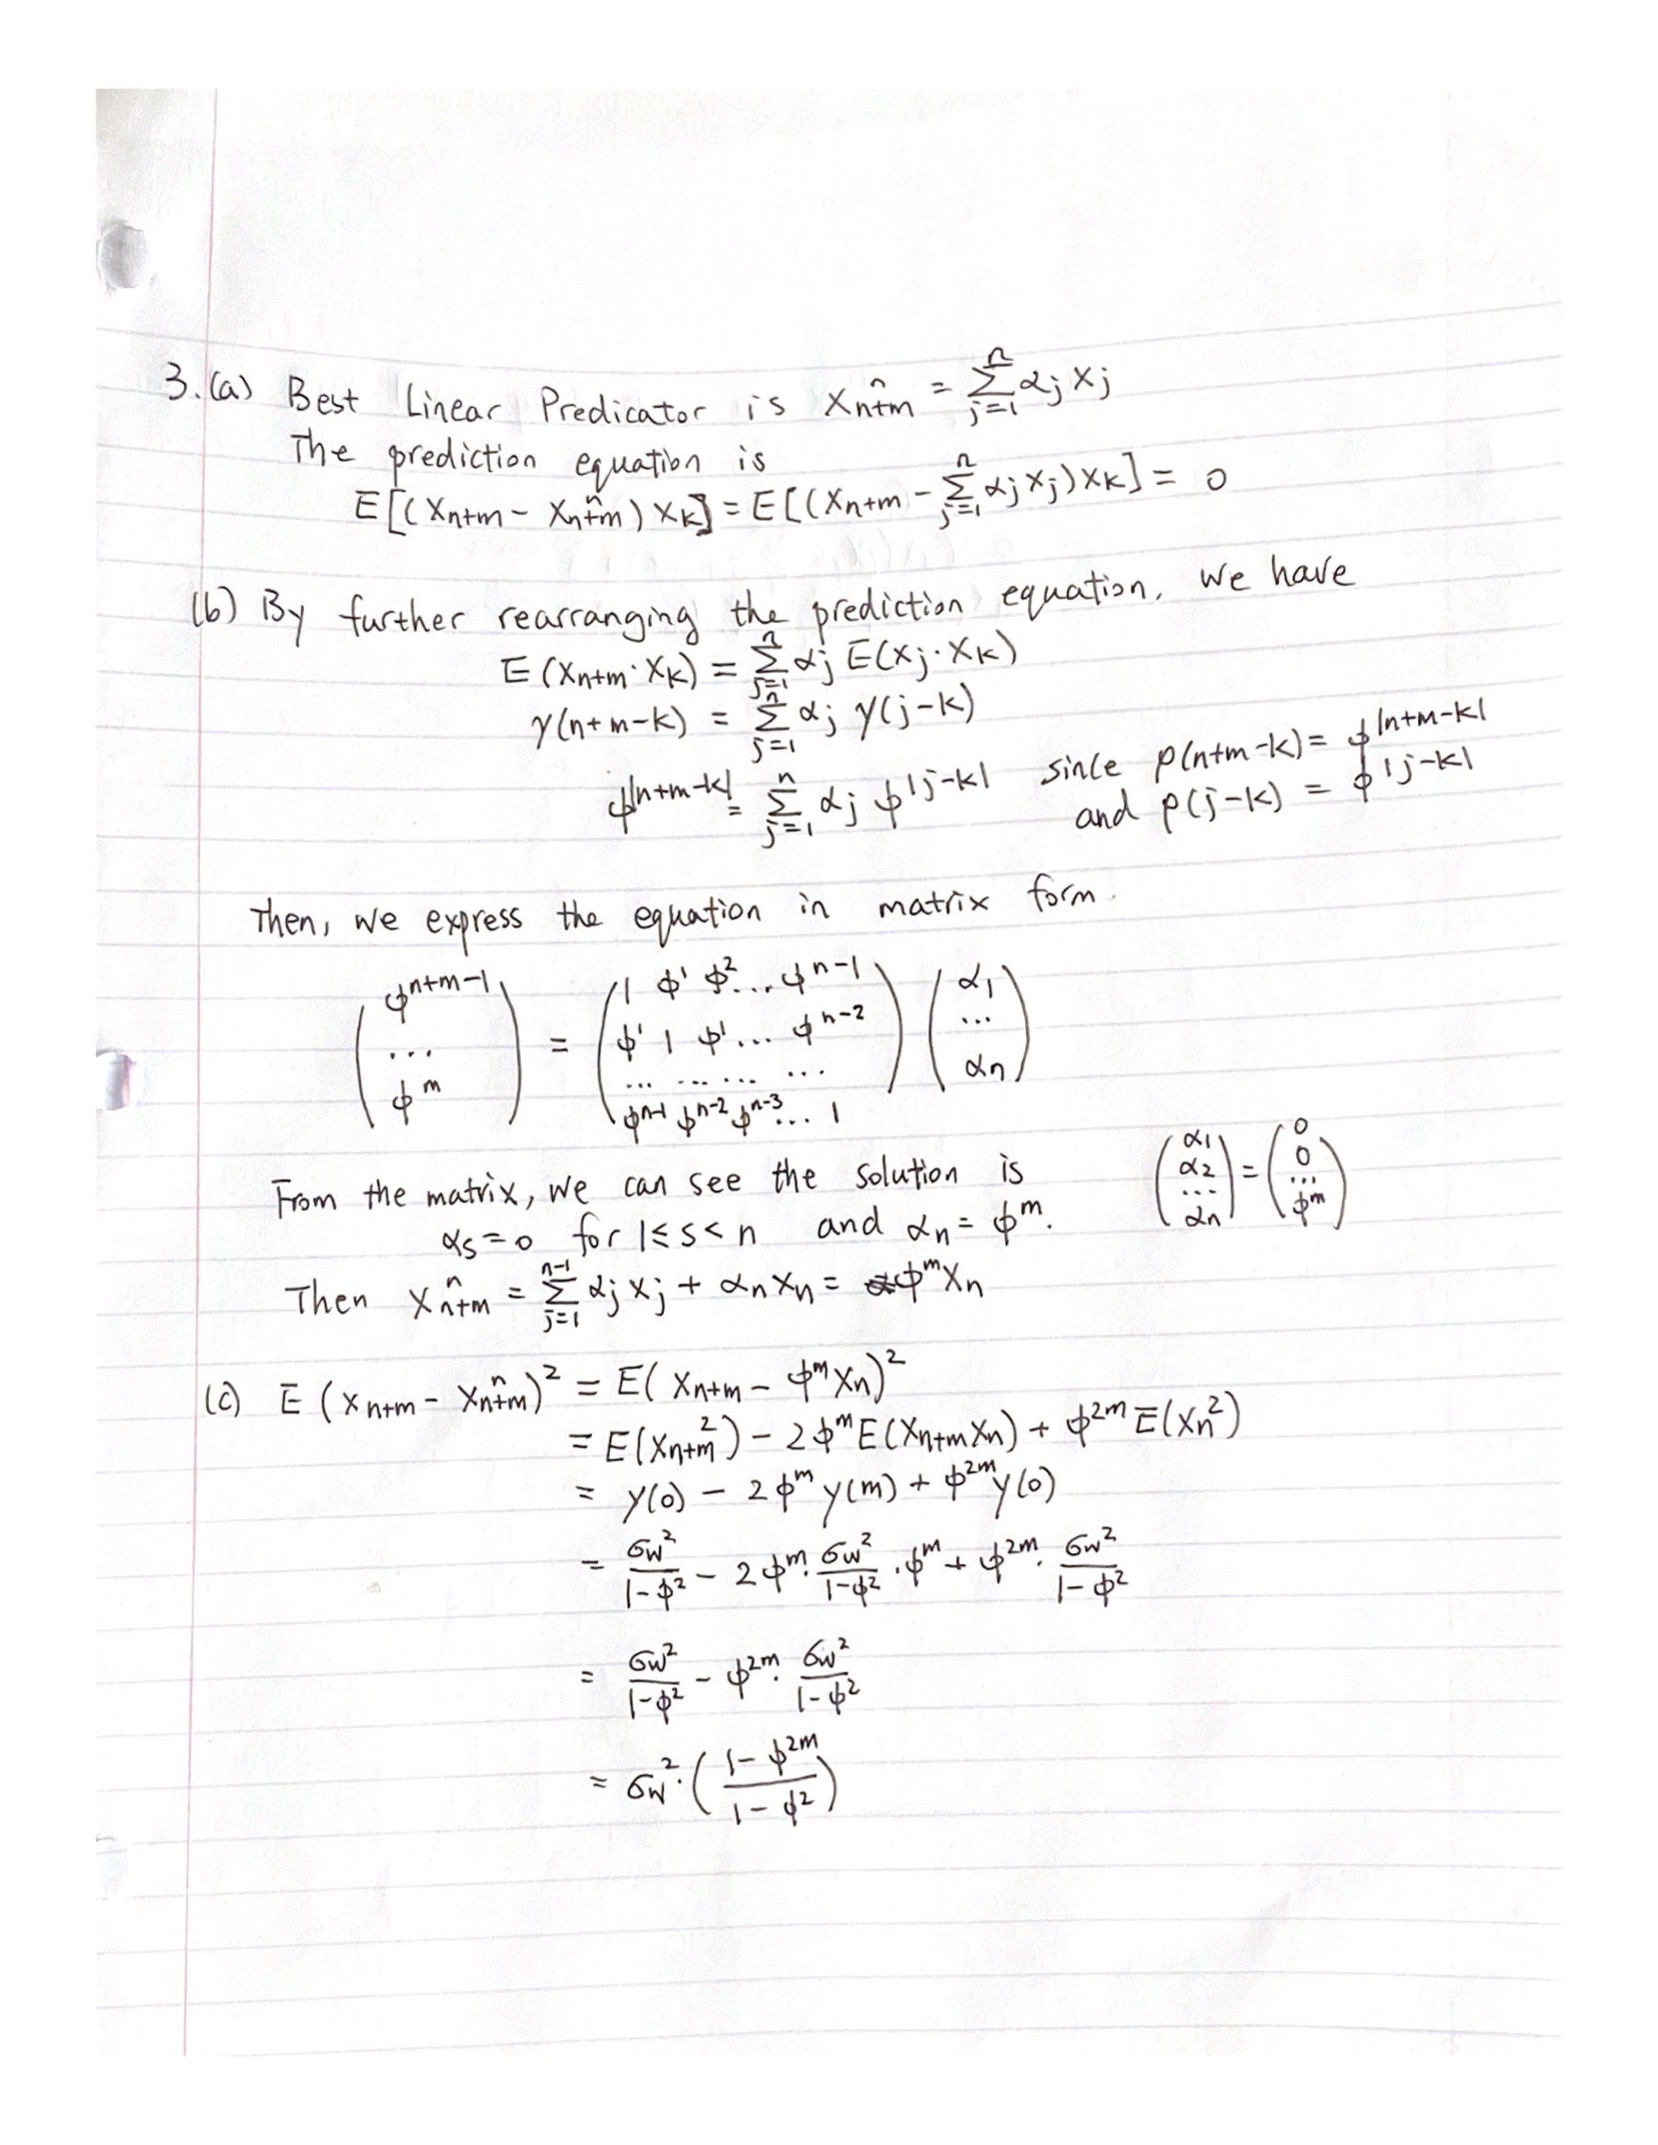 3.(a) Best Linear Predicator is Xₙ₊ₘⁿ = Σⱼ₌₁ⁿ αⱼ Xⱼ
The prediction equation is
E[(Xₙ₊ₘ − Xₙ₊ₘⁿ) Xₖ] = E[(Xₙ₊ₘ − Σⱼ₌₁ⁿ αⱼ Xⱼ) Xₖ] = 0
(b) By further rearranging the prediction equation, we have
E(Xₙ₊ₘ · Xₖ) = Σⱼ₌₁ⁿ αⱼ E(Xⱼ · Xₖ)
γ(n+m−k) = Σⱼ₌₁ⁿ αⱼ γ(j−k)
ϕ^|n+m−k| = Σⱼ₌₁ⁿ αⱼ ϕ^|j−k| since ρ(n+m−k) = ϕ^|n+m−k|
and ρ(j−k) = ϕ^|j−k|
Then, we express the equation in matrix form.
ϕ^{n+m−1} 1 ϕ¹ ϕ² ... ϕ^{n−1} α₁
... = ϕ¹ 1 ϕ¹ ... ϕ^{n−2} ...
... ... ... ...
ϕ^m ϕ^{n−1} ϕ^{n−2} ϕ^{n−3} ... 1 αₙ
From the matrix, we can see the solution is
αₛ = 0 for 1 ≤ s < n and αₙ = ϕ^m.
α₁ 0
α₂ = 0
... ...
αₙ ϕ^m
Then Xₙ₊ₘⁿ = Σⱼ₌₁ⁿ⁻¹ αⱼ Xⱼ + αₙ Xₙ = ϕ^m Xₙ
(c) E(Xₙ₊ₘ − Xₙ₊ₘⁿ)² = E(Xₙ₊ₘ − ϕ^m Xₙ)²
= E(Xₙ₊ₘ²) − 2ϕ^m E(Xₙ₊ₘ Xₙ) + ϕ^{2m} E(Xₙ²)
= γ(0) − 2ϕ^m γ(m) + ϕ^{2m} γ(0)
= σw²/(1−ϕ²) − 2ϕ^m · σw²/(1−ϕ²) · ϕ^m + ϕ^{2m} · σw²/(1−ϕ²)
= σw²/(1−ϕ²) − ϕ^{2m} · σw²/(1−ϕ²)
= σw² · ((1−ϕ^{2m})/(1−ϕ²))